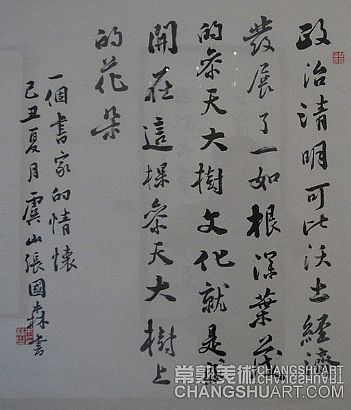 政治清明可比沃土經濟
發展了一如根深葉茂
的參天大樹文化就是盛
開在這棵參天大樹上
的花朵
一個書家的情懷
己丑夏月虞山張國森書
常熟美術
CHANGSHUART
CHANGSHUART.COM